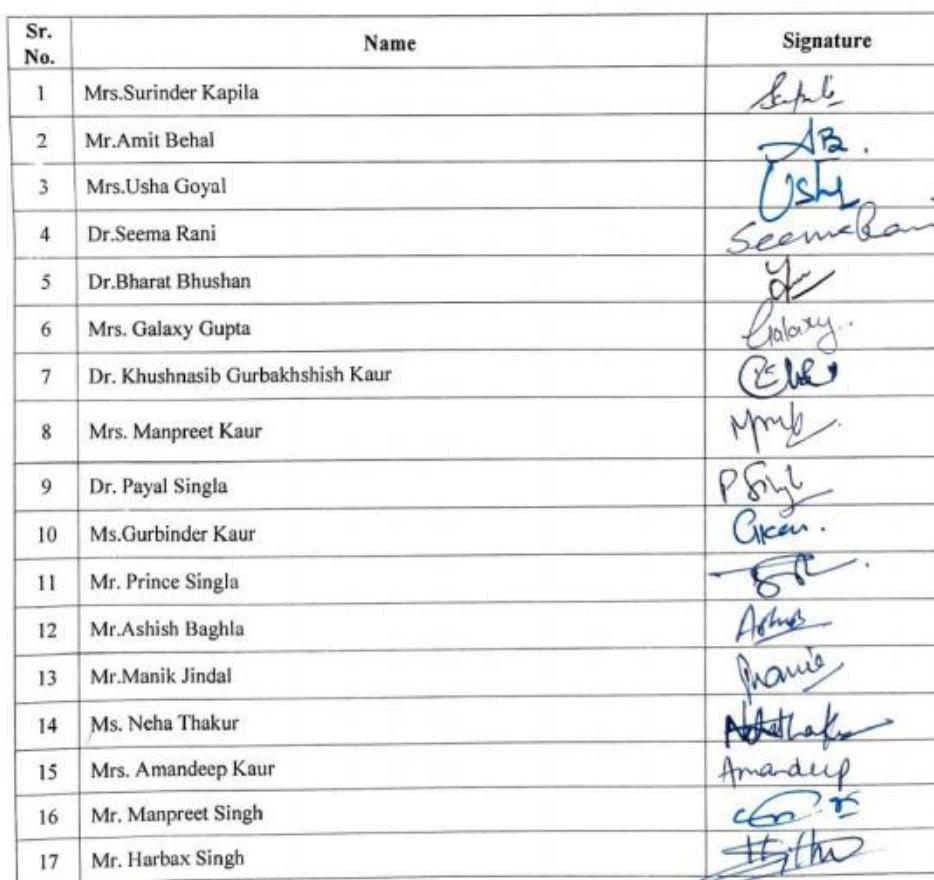 Sr. No. Name Signature
1 Mrs.Surinder Kapila
2 Mr.Amit Behal AB.
3 Mrs.Usha Goyal Usha
4 Dr.Seema Rani Seema Rani
5 Dr.Bharat Bhushan
6 Mrs. Galaxy Gupta Galaxy..
7 Dr. Khushnasib Gurbakhshish Kaur
8 Mrs. Manpreet Kaur
9 Dr. Payal Singla
10 Ms.Gurbinder Kaur
11 Mr. Prince Singla
12 Mr.Ashish Baghla
13 Mr.Manik Jindal
14 Ms. Neha Thakur
15 Mrs. Amandeep Kaur Amandeep
16 Mr. Manpreet Singh
17 Mr. Harbax Singh